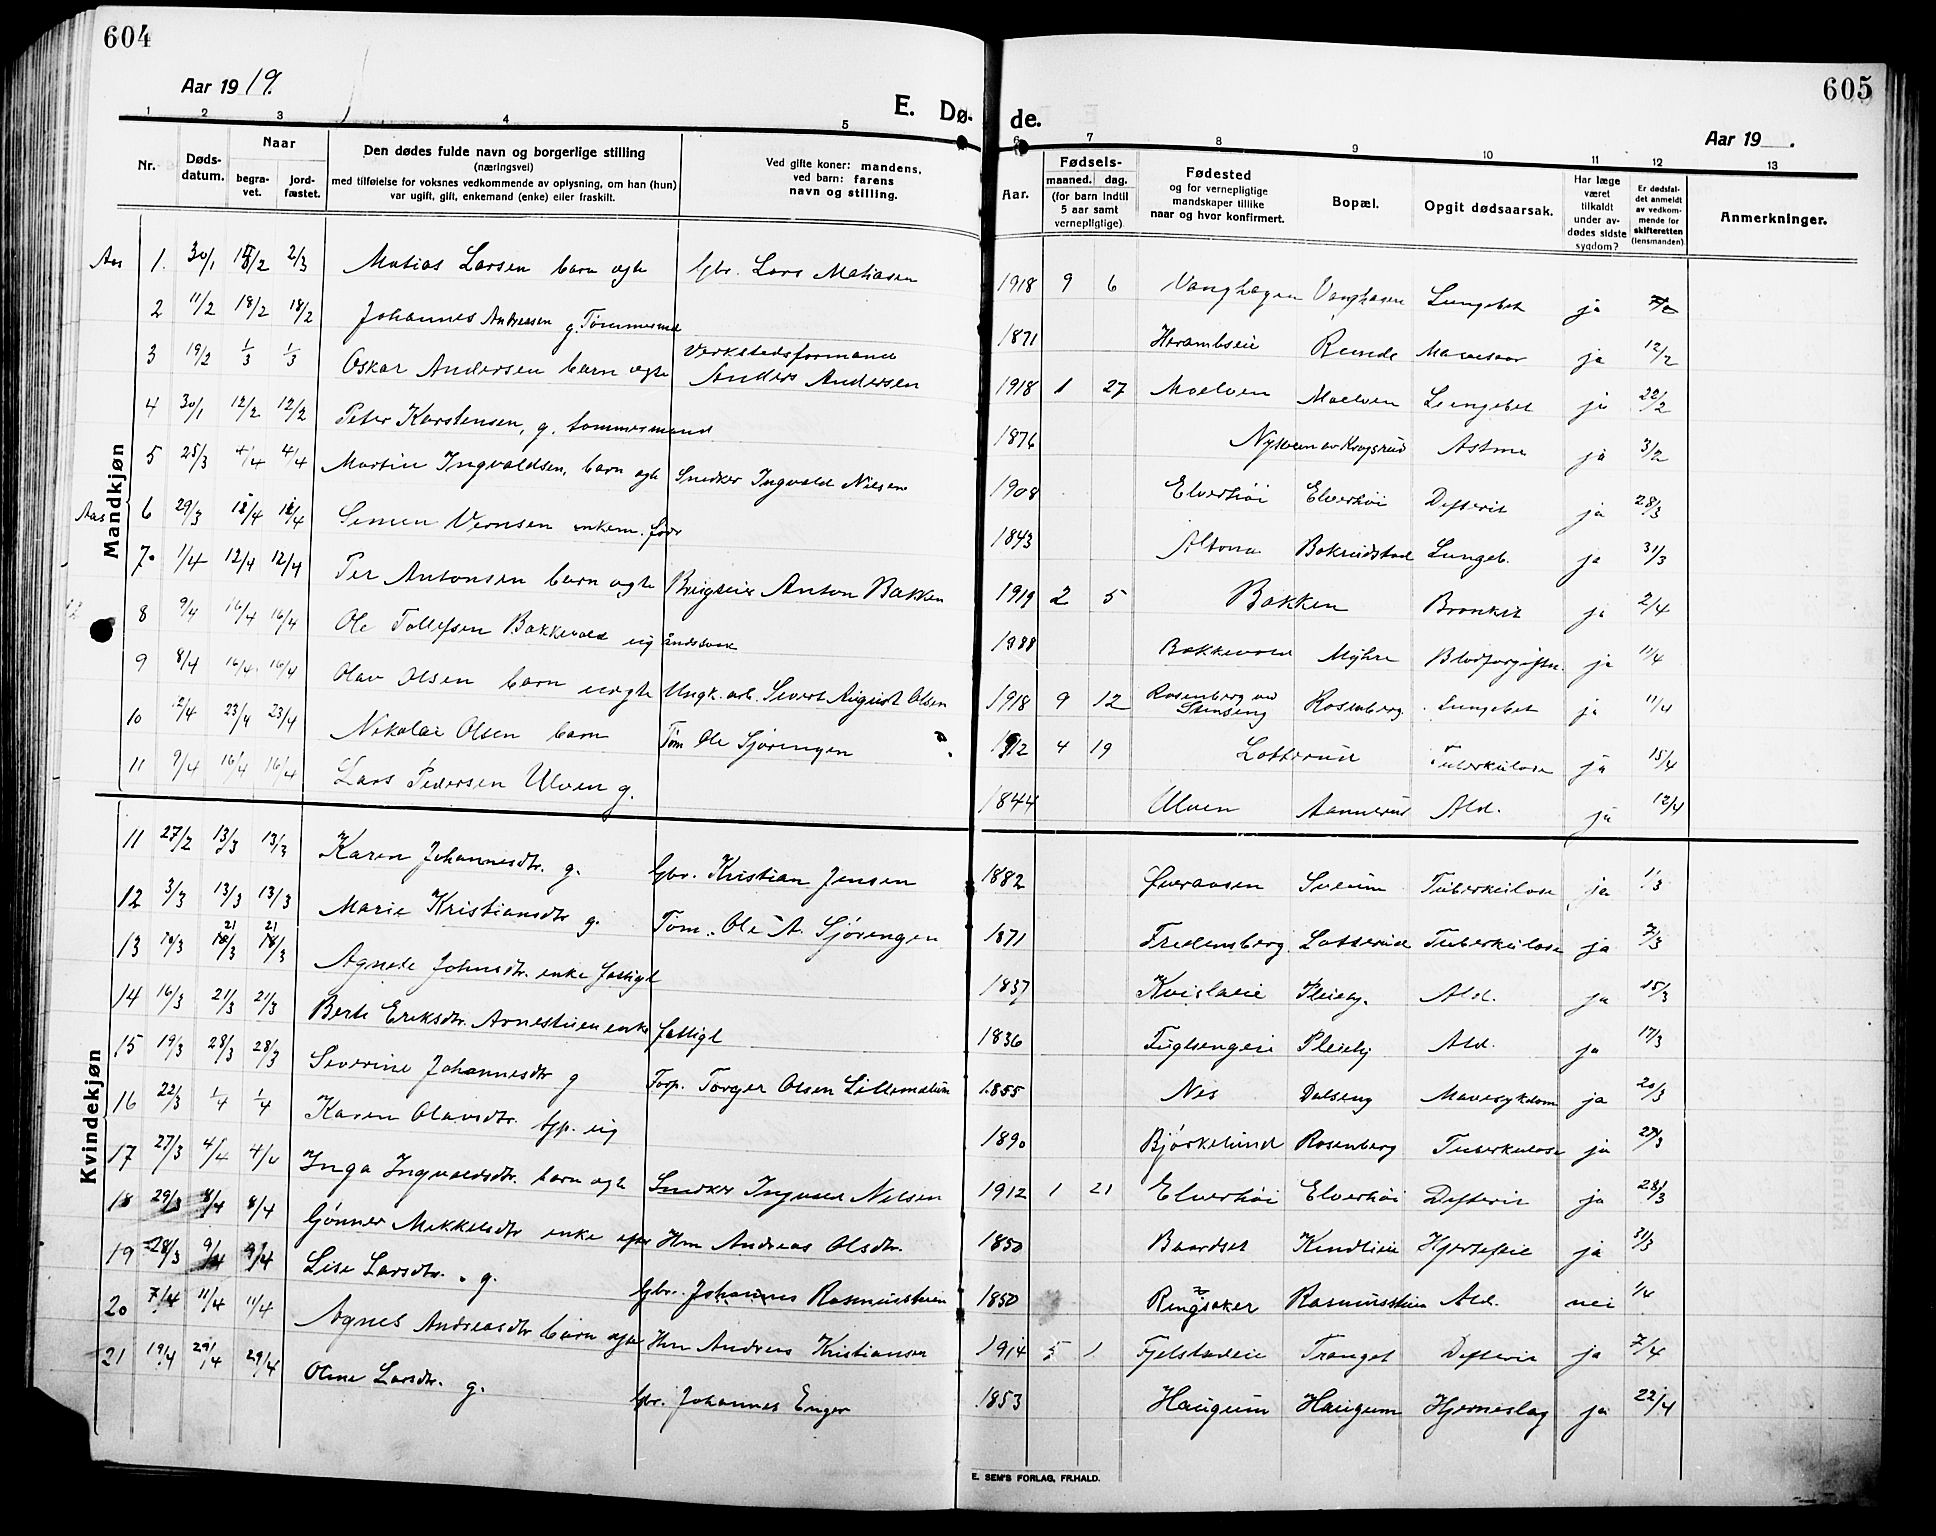 604
Aar 1919.
E. Dø-
1 2 3 4 5
Nr. Døds-datum. Naar begra-vet. jord-fæstet. Den dødes fulde navn og borgerlige stilling (næringsvei) med tilføielse for voksnes vedkommende av oplysning, om han (hun) var ugift, gift, enkemand (enke) eller fraskilt. Ved gifte koner: mandens, ved barn: farens navn og stilling.
Mandkjøn
Aas 1. 30/1 2/3 Matias Larsen barn egte Gbr. Lars Matiasen
2 11/2 18/2 18/2 Johannes Andreassen g. Tømmermd
3 19/2 1/3 1/3 Oskar Andersen barn egte Verkstedsformand Anders Andersen
4 30/1 12/2 12/2 Peter Karstensen, g. tømmermand
5 25/3 4/4 4/4 Martin Ingvaldsen, barn egte Snedker Ingvald Nilsen
Aas 6 29/3 Simen Vernsen enkem. fodr
7. 1/4 12/4 12/4 Per Antonsen barn egte Brugseier Anton Bakken
8 9/4 16/4 16/4 Ole Tollefsen Bakkevold ug åndssvak
9 8/4 16/4 16/4 Olav Olsen barn uegte Ungk. arb. Severt August Olsen
10 12/4 23/4 23/4 Nikolai Olsen barn Tøm Ole Sjørengen
11 9/4 16/4 16/4 Lars Pedersen Ulven g.
Kvindekjøn
11 27/2 13/3 13/3 Karen Johannesdtr. g. Gbr. Kristian Jensen
12 3/3 13/3 13/3 Marie Kristiansdtr g. Tøm. Ole A. Sjørengen
13 10/3 21 18/3 21 18/3 Agnete Johnsdtr. enke fattigl
14 16/3 21/3 21/3 Berte Eriksdtr. Arnestuen enke fattigl
15 19/3 28/3 28/3 Severine Johannesdtr g Torp. Torger Olsen Lillemælum
16 22/3 1/4 1/4 Karen Olavsdtr. tjp. ug
17 27/3 4/4 4/4 Inga Ingvaldsdtr. barn egte Snedker Ingvald Nilsen
18 29/3 8/4 8/4 Gønner Mikkelsdtr enke efter Hm Andreas Olsdtr.
19 28/3 9/4 9/4 Lise Larsdtr. g. Gbr. Johannes Rasmusstuen
20 7/4 11/4 11/4 Agnes Andreasdtr barn egte Hm Andreas Kristiansen
21 19/4 29/4 29/4 Oline Larsdtr. g. Gbr. Johannes Enger
605
de.
Aar 19 .
6 7 8 9 10 11 12 13
Aar. Fødsels-maaned. dag. (for barn indtil 5 aar samt vernepligtige) Fødested og for vernepligtige mandskaper tillike naar og hvor konfirmert. Bopæl. Opgit dødsaarsak. Har læge været tilkaldt under av-dødes sidste sygdom? Er dødsfal-det anmeldt av vedkom-mende for skifteretten (lensmanden) Anmerkninger.
1918 9 6 Vanghagen Vanghagen Lungebet ja
1871 Herambseie Remde Mavesaar ja 12/2
1918 1 27 Moelven Moelven Lungebet ja 22/2
1876 Astma ja 3/2
1908 Elverhöi Elverhöi Difterit ja 28/3
1843 Altona Bakrudstad Lungeb. ja 31/3
1919 2 5 Bakken Bronkit ja 2/4
1888 Bakkevold Myhre Blodforgiftn. ja 11/4
1918 9 12 Rosenberg av Stenseng Rosenberg Lungebet ja 11/4
1912 4 19 Lotterud Tuberkulose ja 15/4
1844 Ulven Aannerud Ald. ja 12/4
1882 Sveum Tuberkulose ja 1/3
1871 Fredensberg Lotterud Tuberkulose ja 7/3
1837 Kvislaeie Pleiehj. Ald. ja 15/3
1836 Fuglsengeie Pleiehj Ald. ja 17/3
1855 Nes Dalseng Mavesykdom ja 20/3
1890 Bjørkelund Rosenberg Tuberkulose ja 27/3
1912 1 21 Elverhöi Elverhöi Difterit ja 28/3
1850 Baardset Kindlieie Hjertefeil ja 31/3
1850 Ringsaker Rasmusstuen Ald. nei 1/4
1914 5 1 Fjelstadeie Tranget Difterit ja 7/4
1853 Haugum Haugum Hjerneslag ja 22/4
E. SEM'S FORLAG, FR.HALD.